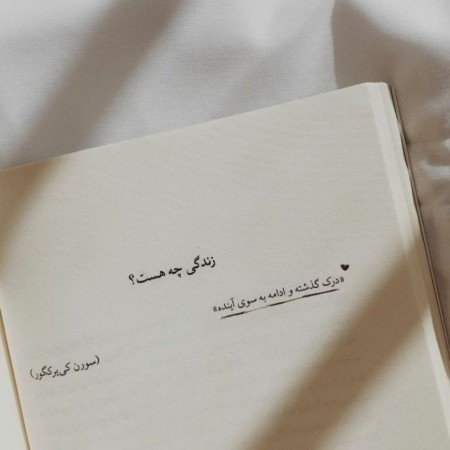 زندگی چه هست؟
«درک گذشته و ادامه به سوی آینده»
(سورن کی‌یرکگور)